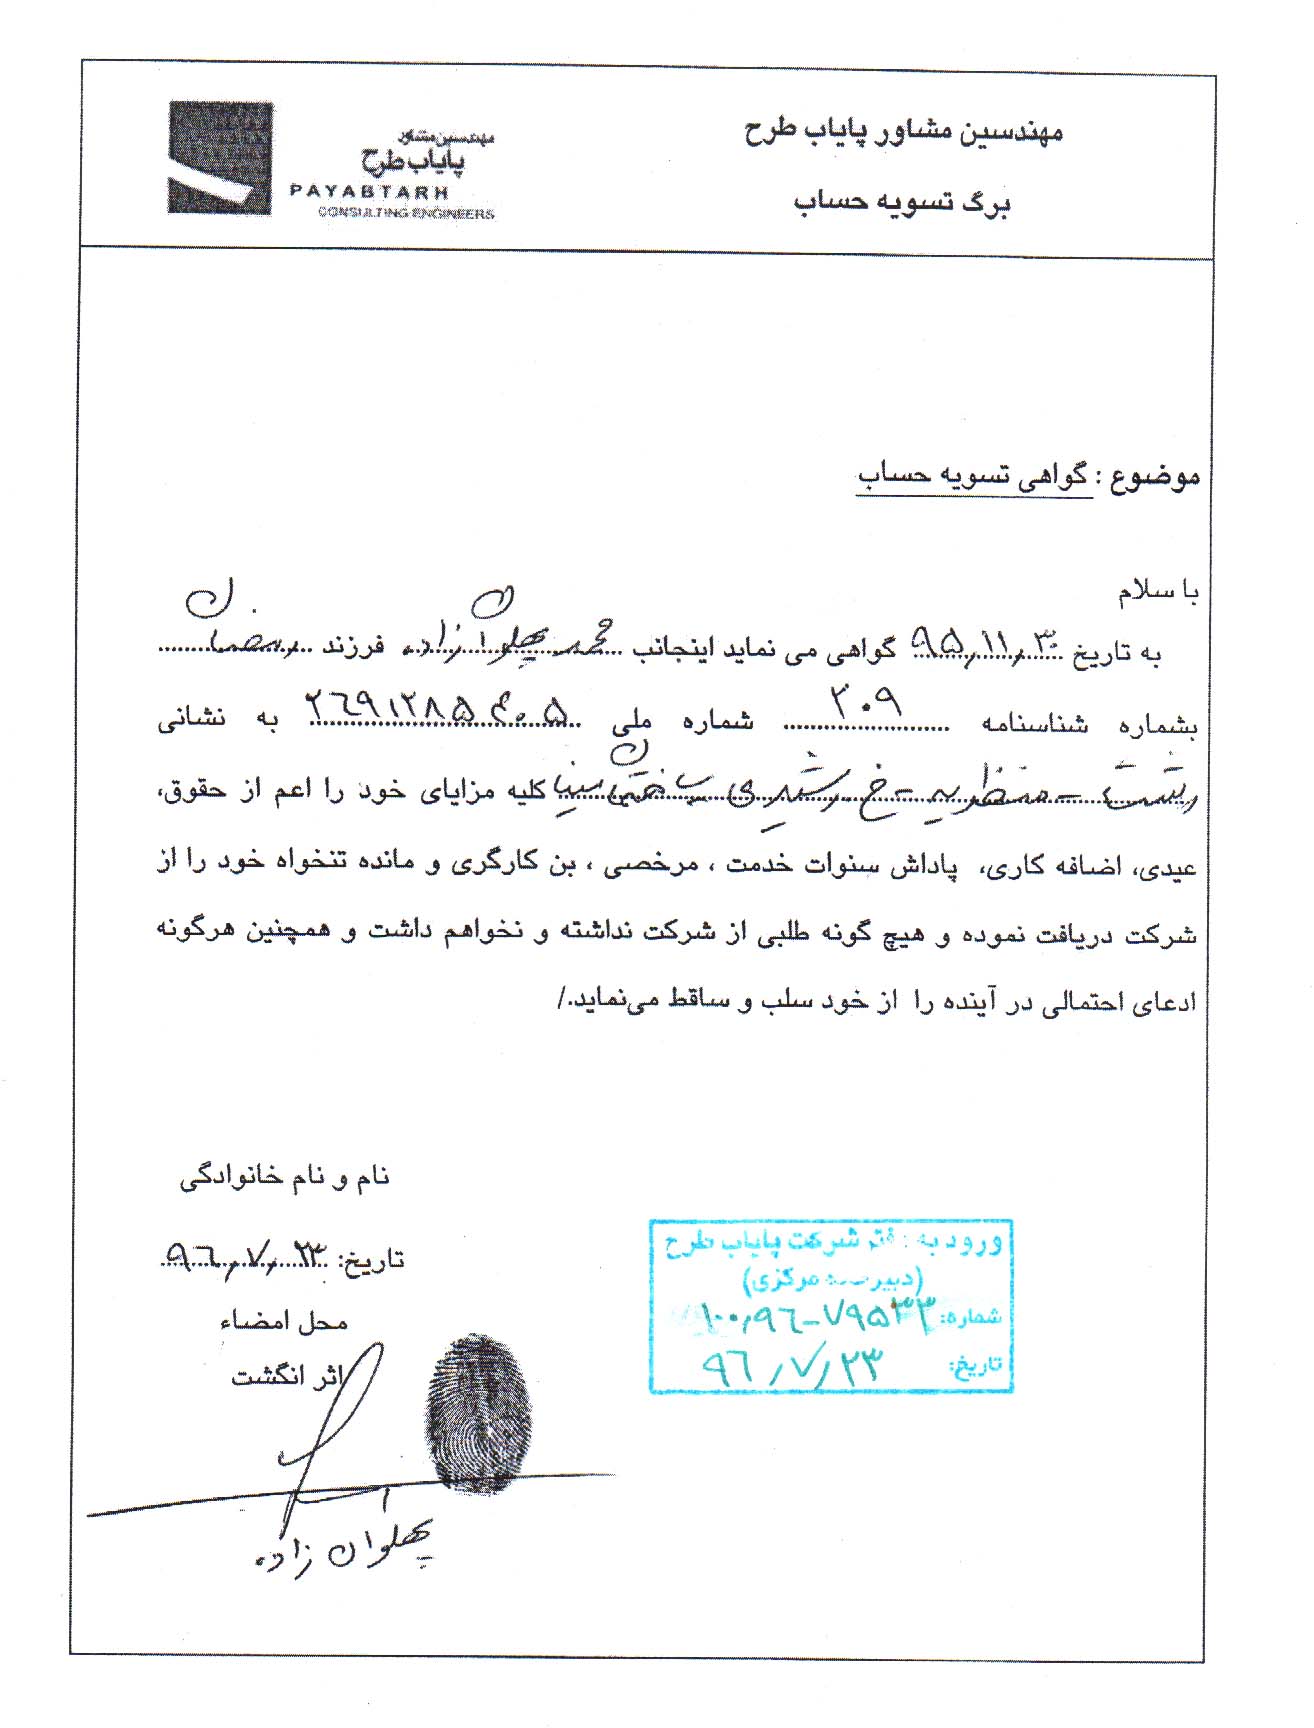 مهندسین مشاور پایاب طرح
برگ تسویه حساب
مهندسین مشاور
پایاب طرح
PAYABTARH
CONSULTING ENGINEERS
موضوع : گواهی تسویه حساب
با سلام
به تاریخ ۹۵/۱۱/۳۰ گواهی می نماید اینجانب محمد پهلوان زاده فرزند رمضان
بشماره شناسنامه ۲۰۹ شماره ملی ۲۶۹۱۲۸۵۴۰۵ به نشانی
رشت - منظریه - خ کلیه مزایای خود را اعم از حقوق،
عیدی، اضافه کاری، پاداش سنوات خدمت ، مرخصی ، بن کارگری و مانده تنخواه خود را از
شرکت دریافت نموده و هیچ گونه طلبی از شرکت نداشته و نخواهم داشت و همچنین هرگونه
ادعای احتمالی در آینده را از خود سلب و ساقط می‌نماید./
نام و نام خانوادگی
تاریخ: ۹۶/۷/۲۳
محل امضاء
اثر انگشت
پهلوان زاده
ورود به : شرکت پایاب طرح
مرکزی)
شماره: ۱۰۰/۹۶-۷۹۵۳۳
تاریخ: ۹۶/۷/۲۳